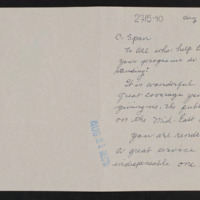 2715-90 aug
C. Span
To all who help
your programs
It is wonderful
great coverage you
giving me, the publ
on the Mid. East
you are rende
a great service
indispensable one